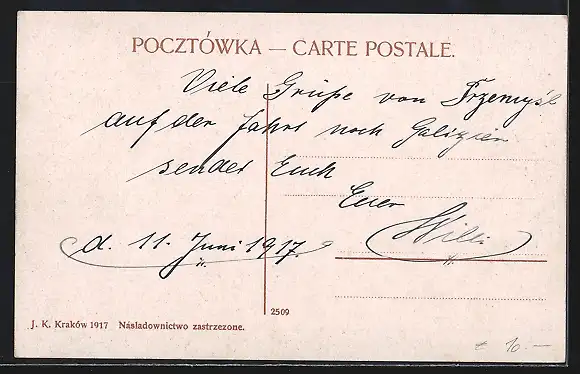 POCZTÓWKA — CARTE POSTALE.
Viele Grüße von Przemyśl
auf der Fahrt nach Galizien
sendet Euch
Euer
Willi
d. 11. Juni 1917.
2509
J. K. Kraków 1917 Naśladownictwo zastrzezone.
€ 10.—